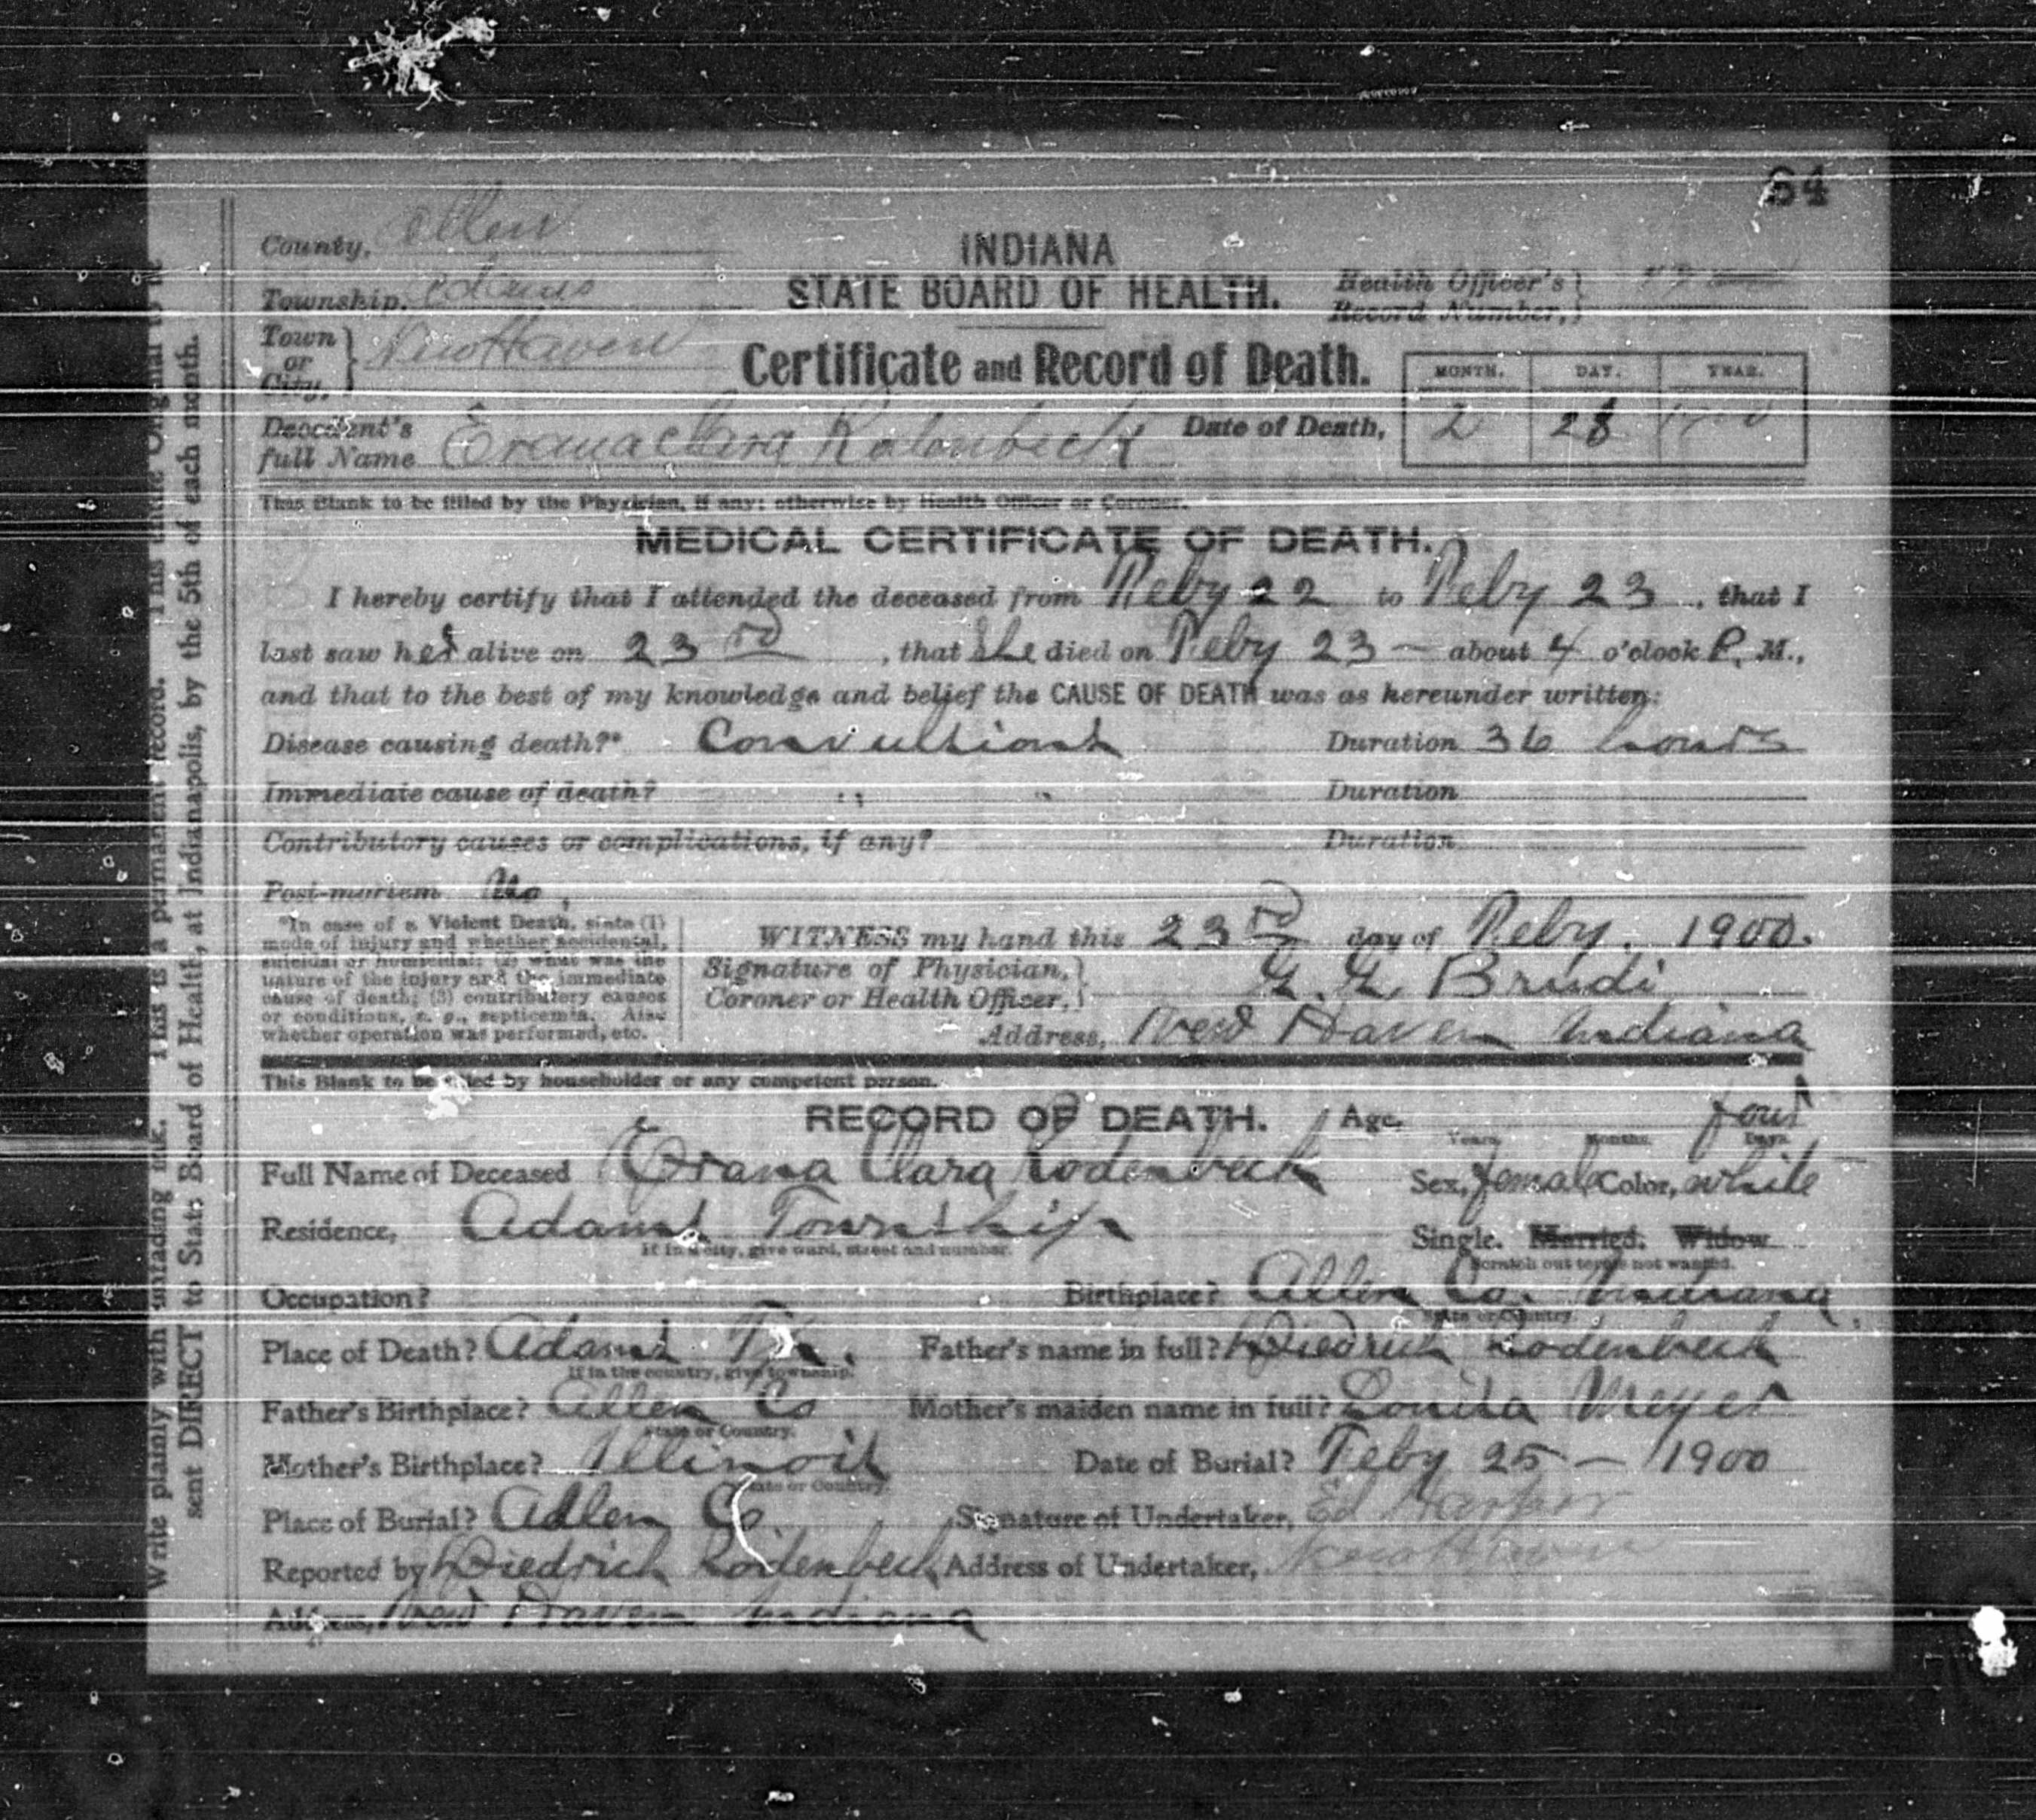 64
County, Allen
INDIANA
Township, Adams
STATE BOARD OF HEALTH.
Health Officer's Record Number,
Town or City, New Haven
Certificate and Record of Death.
MONTH. DAY. YEAR.
Decedent's full Name Erana Clara Rodenbeck Date of Death, 2 1900
This Blank to be filled by the Physician, if any; otherwise by Health Officer or Coroner.
MEDICAL CERTIFICATE OF DEATH.
I hereby certify that I attended the deceased from Feby 22 to Feby 23, that I
last saw her alive on 23rd, that she died on Feby 23 — about 4 o'clock P. M.,
and that to the best of my knowledge and belief the CAUSE OF DEATH was as hereunder written:
Disease causing death?* Convulsions Duration 36 hours
Immediate cause of death? " " Duration
Contributory causes or complications, if any? Duration
Post-mortem No,
*In case of a Violent Death, state (1)
mode of injury and whether accidental,
suicidal or homicidal; (2) what was the
nature of the injury and the immediate
cause of death; (3) contributory causes
or conditions, e. g., septicemia. Also
whether operation was performed, etc.
WITNESS my hand this 23rd day of Feby. 1900.
Signature of Physician, Coroner or Health Officer, Brudi
Address, New Haven Indiana
This Blank to be filled by householder or any competent person.
RECORD OF DEATH. Age, four
Years. Months. Days.
Full Name of Deceased Erana Clara Rodenbeck Sex, female Color, white
Residence, Adams Township Single. Married. Widow
If in a city, give ward, street and number. Scratch out terms not wanted.
Occupation? Birthplace? Allen Co. Indiana
State or Country.
Place of Death? Adams Tp. Father's name in full? Diedrich Rodenbeck
If in the country, give township.
Father's Birthplace? Allen Co Mother's maiden name in full? Louisa Meyer
State or Country.
Mother's Birthplace? Illinois Date of Burial? Feby 25 — 1900
State or Country.
Place of Burial? Allen Co Signature of Undertaker, Ed Harper
Reported by Diedrich Rodenbeck Address of Undertaker, New Haven
Address, New Haven Indiana
Write plainly with unfading ink. This is a permanent record. This Original to be
sent DIRECT to State Board of Health, at Indianapolis, by the 5th of each month.